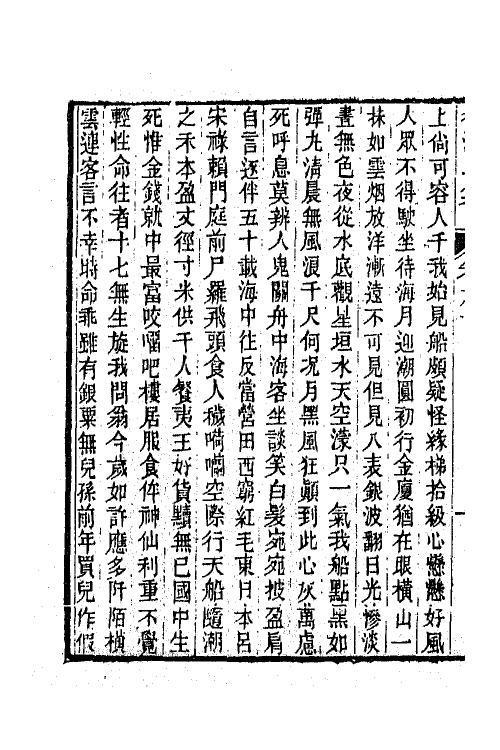 上尙可容人千我始見船頗疑怪緣梯拾級心懸懸好風
人眾不得駛坐待海月迎潮圓初行金廈猶在眼橫山一
抹如雲烟放洋漸遠不可見但見八表銀波翻日光慘淡
晝無色夜從水底觀星垣水天空濛只一氣我船點黑如
彈丸清晨無風浪千尺何况月黑風狂顛到此心灰萬慮
死呼息莫辨人鬼關舟中海客坐談笑白髮宛宛披盈肩
自言逐伴五十載海中往反當營田西窮紅毛東日本呂
宋祿賴門庭前尸羅飛頭食人穢嘀嘓空際行天船隨潮
之禾本盈丈徑寸米供千人餐夷王好貨黷無已國中生
死惟金錢就中最富咬𠺕吧樓居服食侔神仙利重不覺
輕性命往者十七無生旋我問翁今歲如許應多阡陌橫
雲連客言不幸時命乖雖有銀粟無兒孫前年買兒作假